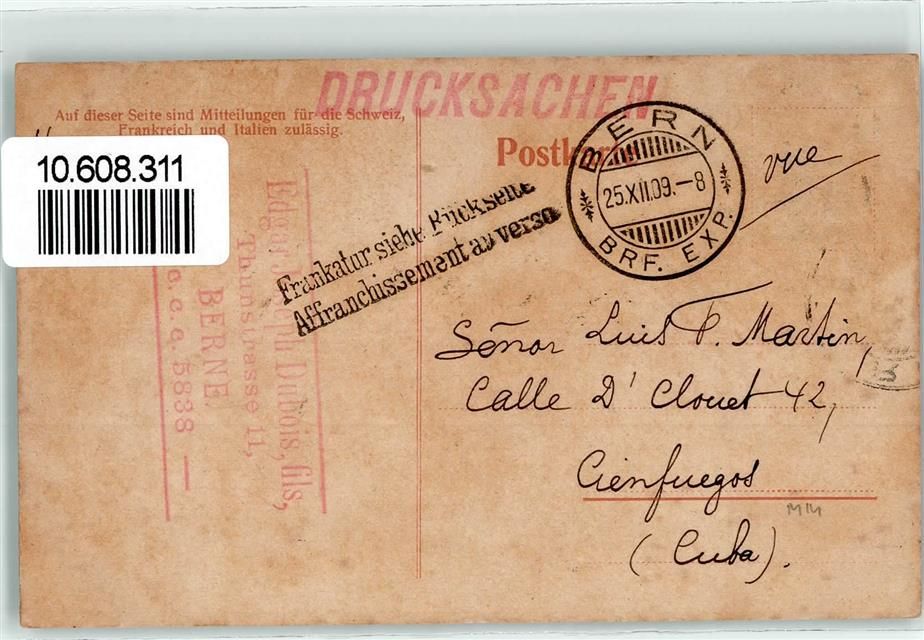 DRUCKSACHEN
Auf dieser Seite sind Mitteilungen für die Schweiz,
Frankreich und Italien zulässig.
Postkarte
10.608.311
BERN
25.XII.09.-8
BRF. EXP.
vue
Frankatur siehe Rückseite
Affranchissement au verso
Edgar Joseph Dubois, fils,
Thunstrasse 11,
BERNE.
a. c. a. 5838 —
Señor Luis F. Martin,
Calle D' Clouet 42,
Cienfuegos
(Cuba).